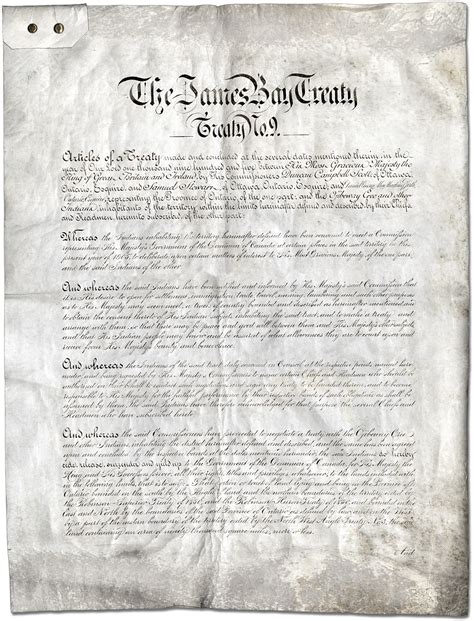 The James Bay Treaty
Treaty No. 9.
Articles of a Treaty made and concluded at the several dates mentioned therein, in the
year of Our Lord one thousand nine hundred and five, between His Most Gracious Majesty the
King of Great Britain and Ireland, by His Commissioners, Duncan Campbell Scott, of Ottawa,
Ontario, Esquire, and Samuel Stewart, of Ottawa, Ontario, Esquire; and
representing the Province of Ontario, of the one part; and the Ojibeway, Cree and other
Indians, inhabitants of the territory within the limits hereinafter defined and described, by their Chiefs
and Headmen hereunto subscribed, of the other part:
Whereas the Indians inhabiting the territory hereinafter defined have been convened to meet a Commission
representing His Majesty's Government of the Dominion of Canada at certain places in the said territory in this
present year of 1905, to deliberate upon certain matters of interest to His Most Gracious Majesty, of the one part,
and the said Indians of the other.
And whereas the said Indians have been notified and informed by His Majesty's said Commission that
it is His desire to open for settlement, immigration, trade, travel, mining, lumbering and such other purposes
as to His Majesty may seem meet, a tract of country bounded and described as hereinafter mentioned and
to obtain the consent thereto of His Indian subjects inhabiting the said tract, and to make a treaty and
arrange with them, so that there may be peace and good will between them and His Majesty's other subjects,
and that His Indian people may know and be assured of what allowances they are to count upon and
receive from His Majesty's bounty and benevolence.
And whereas the Indians of the said tract, duly convened in Council at the respective points named here-
under, and being requested by His Majesty's Commissioners to name certain Chiefs and Headmen who should be
authorized on their behalf to conduct such negotiations and sign any treaty to be founded thereon, and to become
responsible to His Majesty for the faithful performance by their respective bands of such obligations as shall be
assumed by them, the said Indians have therefore acknowledged for that purpose the several Chiefs and
Headmen who have subscribed hereto.
And whereas the said Commissioners have proceeded to negotiate a treaty with the Ojibeway, Cree
and other Indians inhabiting the district hereinafter defined and described, and the same has been agreed
upon and concluded by the respective bands at the dates mentioned hereunder, the said Indians do hereby
cede, release, surrender and yield up to the Government of the Dominion of Canada, for His Majesty the
King and His Successors for ever, all their rights, titles and privileges whatsoever to the lands included with-
in the following limits, that is to say:
Ontario
the Robinson Superior Treaty of 1850, and the Robinson Huron Treaty of 1850, and bounded on the
East and North by the boundaries of the said Province of Ontario as defined by law, and on the West
by a part of the eastern boundary of the territory ceded by the North West Angle Treaty No. 3; the said
land containing an area of ninety thousand square miles, more or less.
And